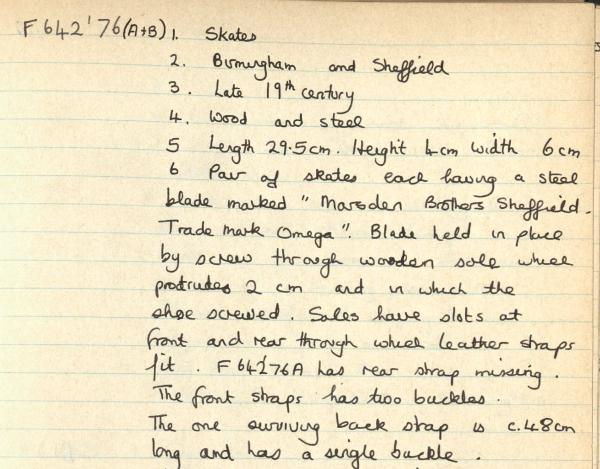 F642'76(A+B) 1. Skates
2. Birmingham and Sheffield
3. Late 19th century
4. Wood and steel
5 Length 29.5cm. Height 4cm width 6cm
6 Pair of skates each having a steel
blade marked "Marsden Brothers Sheffield.
Trade mark Omega". Blade held in place
by screw through wooden sole which
protrudes 2 cm and in which the
shoe screwed. Soles have slots at
front and rear through which leather straps
fit. F642'76A has rear strap missing.
The front straps has two buckles.
The one surviving back strap is c.48cm
long and has a single buckle.